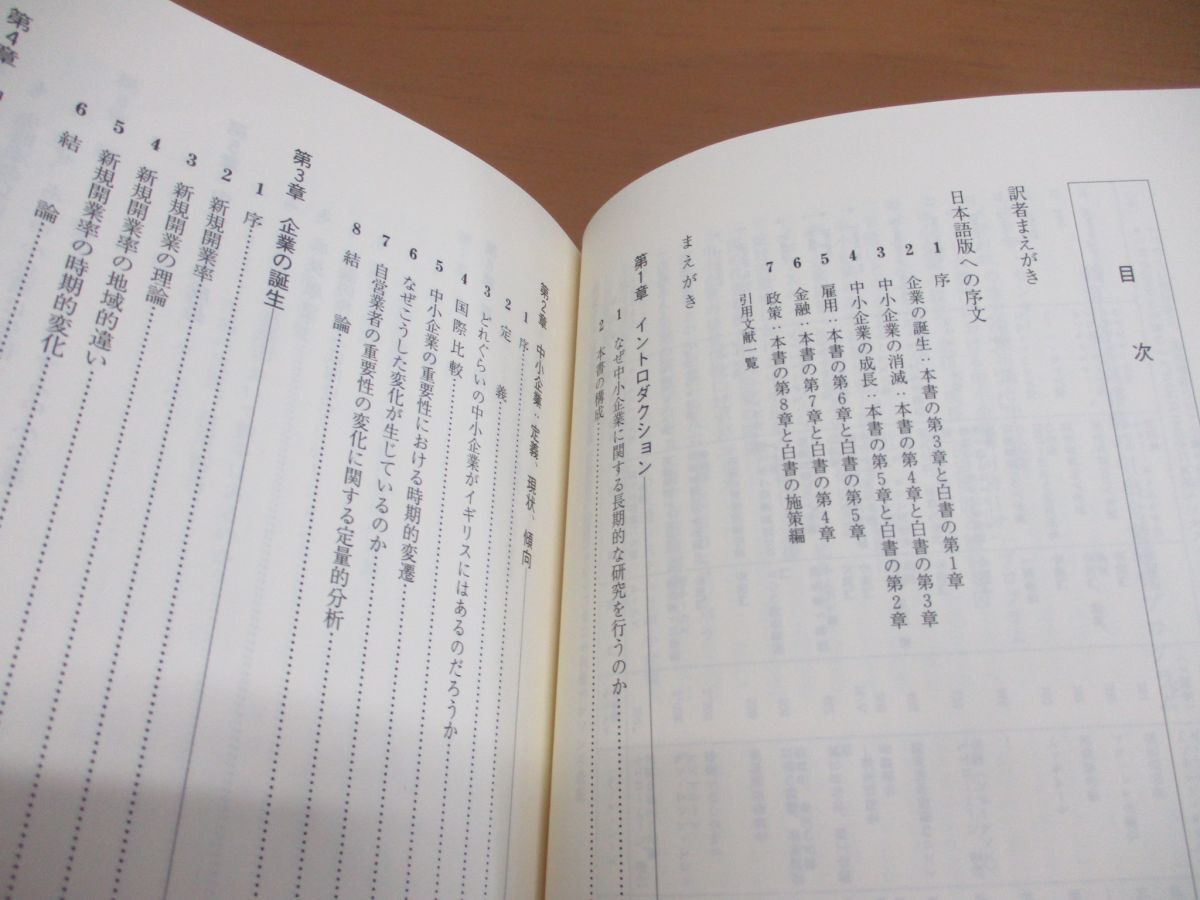 目次
訳者まえがき
日本語版への序文
1 序
2 企業の誕生：本書の第3章と白書の第1章
3 中小企業の消滅：本書の第4章と白書の第3章
4 中小企業の成長：本書の第5章と白書の第2章
5 雇用：本書の第6章と白書の第5章
6 金融：本書の第7章と白書の第4章
7 政策：本書の第8章と白書の施策編
引用文献一覧
まえがき
第1章 イントロダクション
1 なぜ中小企業に関する長期的な研究を行うのか
2 本書の構成
第2章 中小企業：定義、現状、傾向
1 序
2 定義
3 どれぐらいの中小企業がイギリスにはあるのだろうか
4 国際比較
5 中小企業の重要性における時期的変遷
6 なぜこうした変化が生じているのか
7 自営業者の重要性の変化に関する定量的分析
8 結論
第3章 企業の誕生
1 序
2 新規開業率
3 新規開業の理論
4 新規開業率の地域的違い
5 新規開業率の時期的変化
6 結論
第4章